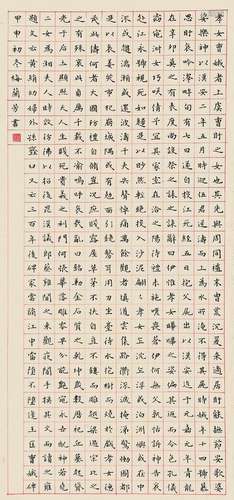 孝女曹娥者上虞曹盱之女也其先與周同祖末胄荒沉爰來適居盱能撫節安歌婆
娑樂神以漢安二年五月時迎伍君逆濤而上為水所淹不得其屍時娥年十四號慕
思盱哀吟澤畔旬有七日遂自投江死經五日抱父屍出以漢安迄于元嘉元年青龍
在辛卯莫之有表度尚設祭之誄之辭曰伊惟孝女曄曄之姿偏其返而令色孔儀
窈窕淑女巧笑倩兮宜其家室在洽之陽待禮未施嗟喪慈父彼蒼伊何無父孰怙訴神告哀
赴江永號視死如歸是以眇然輕絕投入沙泥翩翩孝女乍沉乍浮或泊洲嶼或在中
流或趨湍瀨或還波濤千夫失聲悼痛萬餘觀者填道雲集路衢流淚掩涕驚慟國都
是以哀姜哭市杞崩城隅或有尅面引鏡剺耳用刀坐臺待水抱樹而燒於戲孝女德
茂此儔何者大國防禮自修豈況庶賤露屋草茅不扶自直不鏤而雕越梁過宋比
之有殊哀此貞厲千載不渝嗚呼哀哉銘曰名勒金石質之乾坤歲數曆祀丘墓起墳
光于后土顯照天人生賤死貴義之利門何悵華落雕零早分葩艷窈窕永世配神若堯
二女為湘夫人時效髣髴以招後昆漢議郎蔡雍聞之來觀夜闇手摸其文而讀之雍
題文云黃絹幼婦外孫虀臼又云三百年後碑冢當墮江中當墮不墮逢王叵曹娥碑
甲申初冬梅蘭芳書